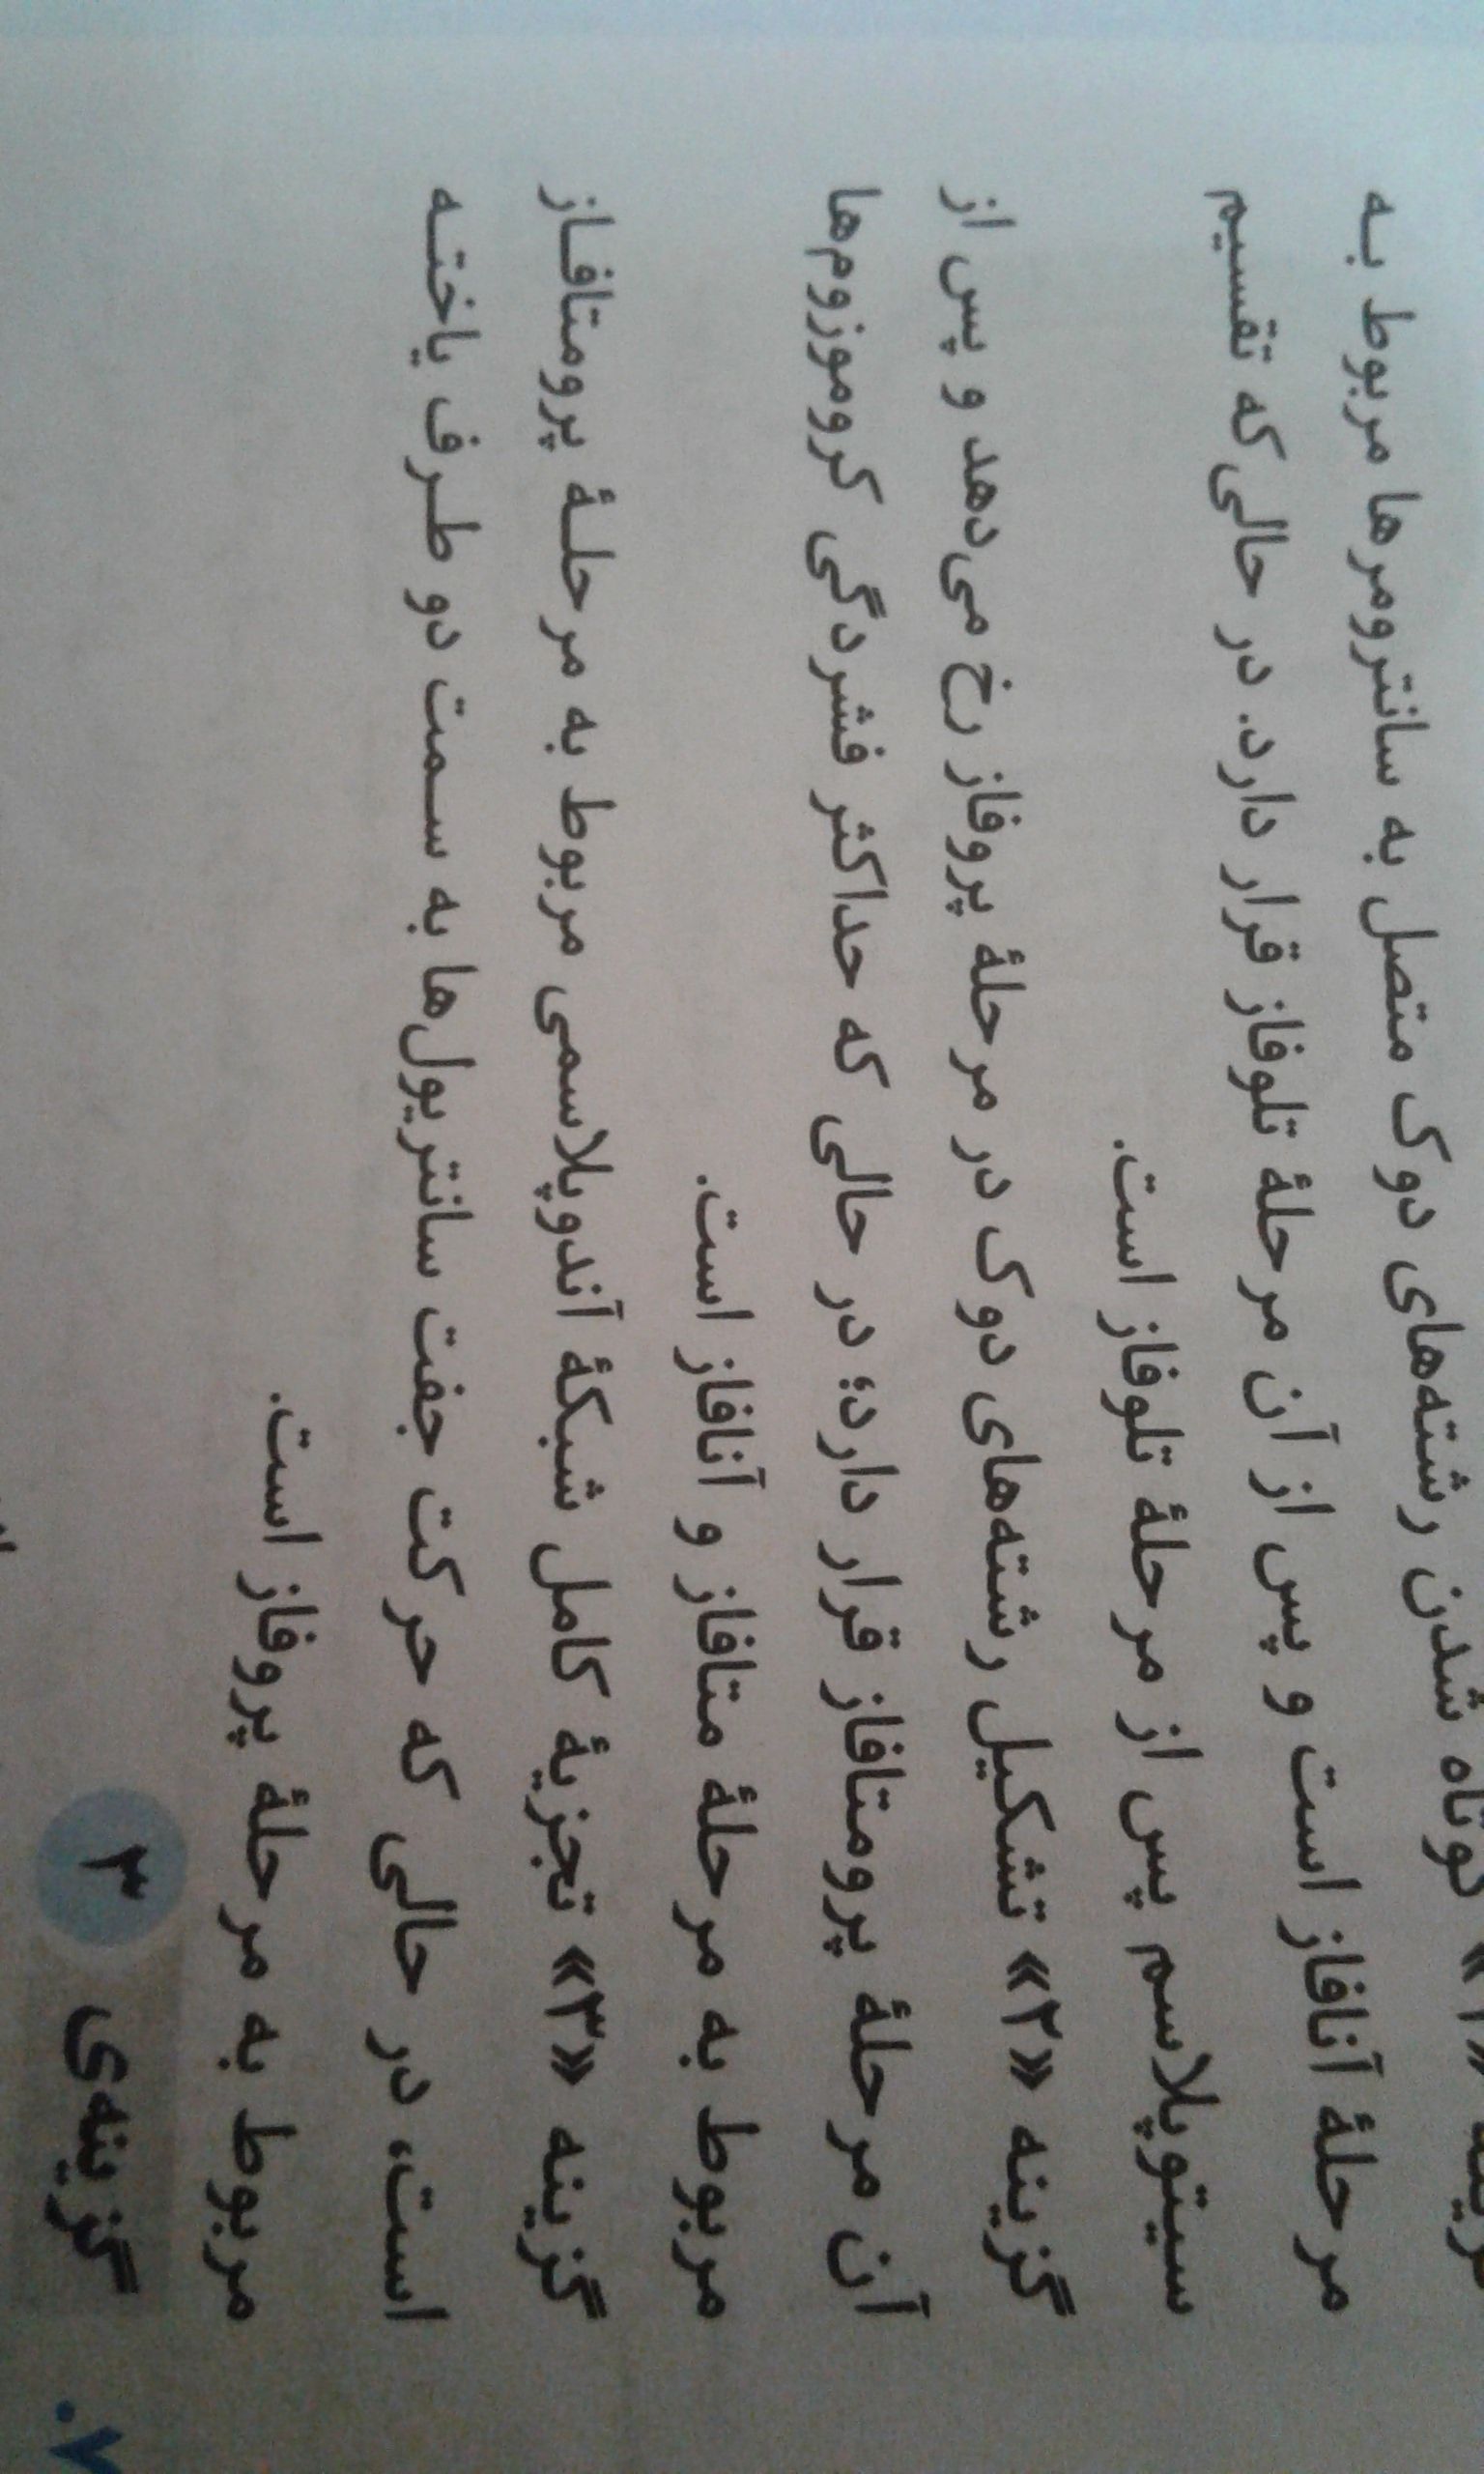 کوتاه شدن رشته‌های دوک متصل به سانترومرها مربوط به
مرحلهٔ آنافاز است و پس از آن مرحلهٔ تلوفاز قرار دارد. در حالی‌که تقسیم
سیتوپلاسم پس از مرحلهٔ تلوفاز است.
گزینه «۲» تشکیل رشته‌های دوک در مرحلهٔ پروفاز رخ می‌دهد و پس از
آن مرحلهٔ پرومتافاز قرار دارد؛ در حالی که حداکثر فشردگی کروموزوم‌ها
مربوط به مرحلهٔ متافاز و آنافاز است.
گزینه «۳» تجزیهٔ کامل شبکهٔ آندوپلاسمی مربوط به مرحلهٔ پرومتافاز
است، در حالی که حرکت جفت سانتریول‌ها به سمت دو طرف یاخته
مربوط به مرحلهٔ پروفاز است.
۷. گزینه‌ی ۳